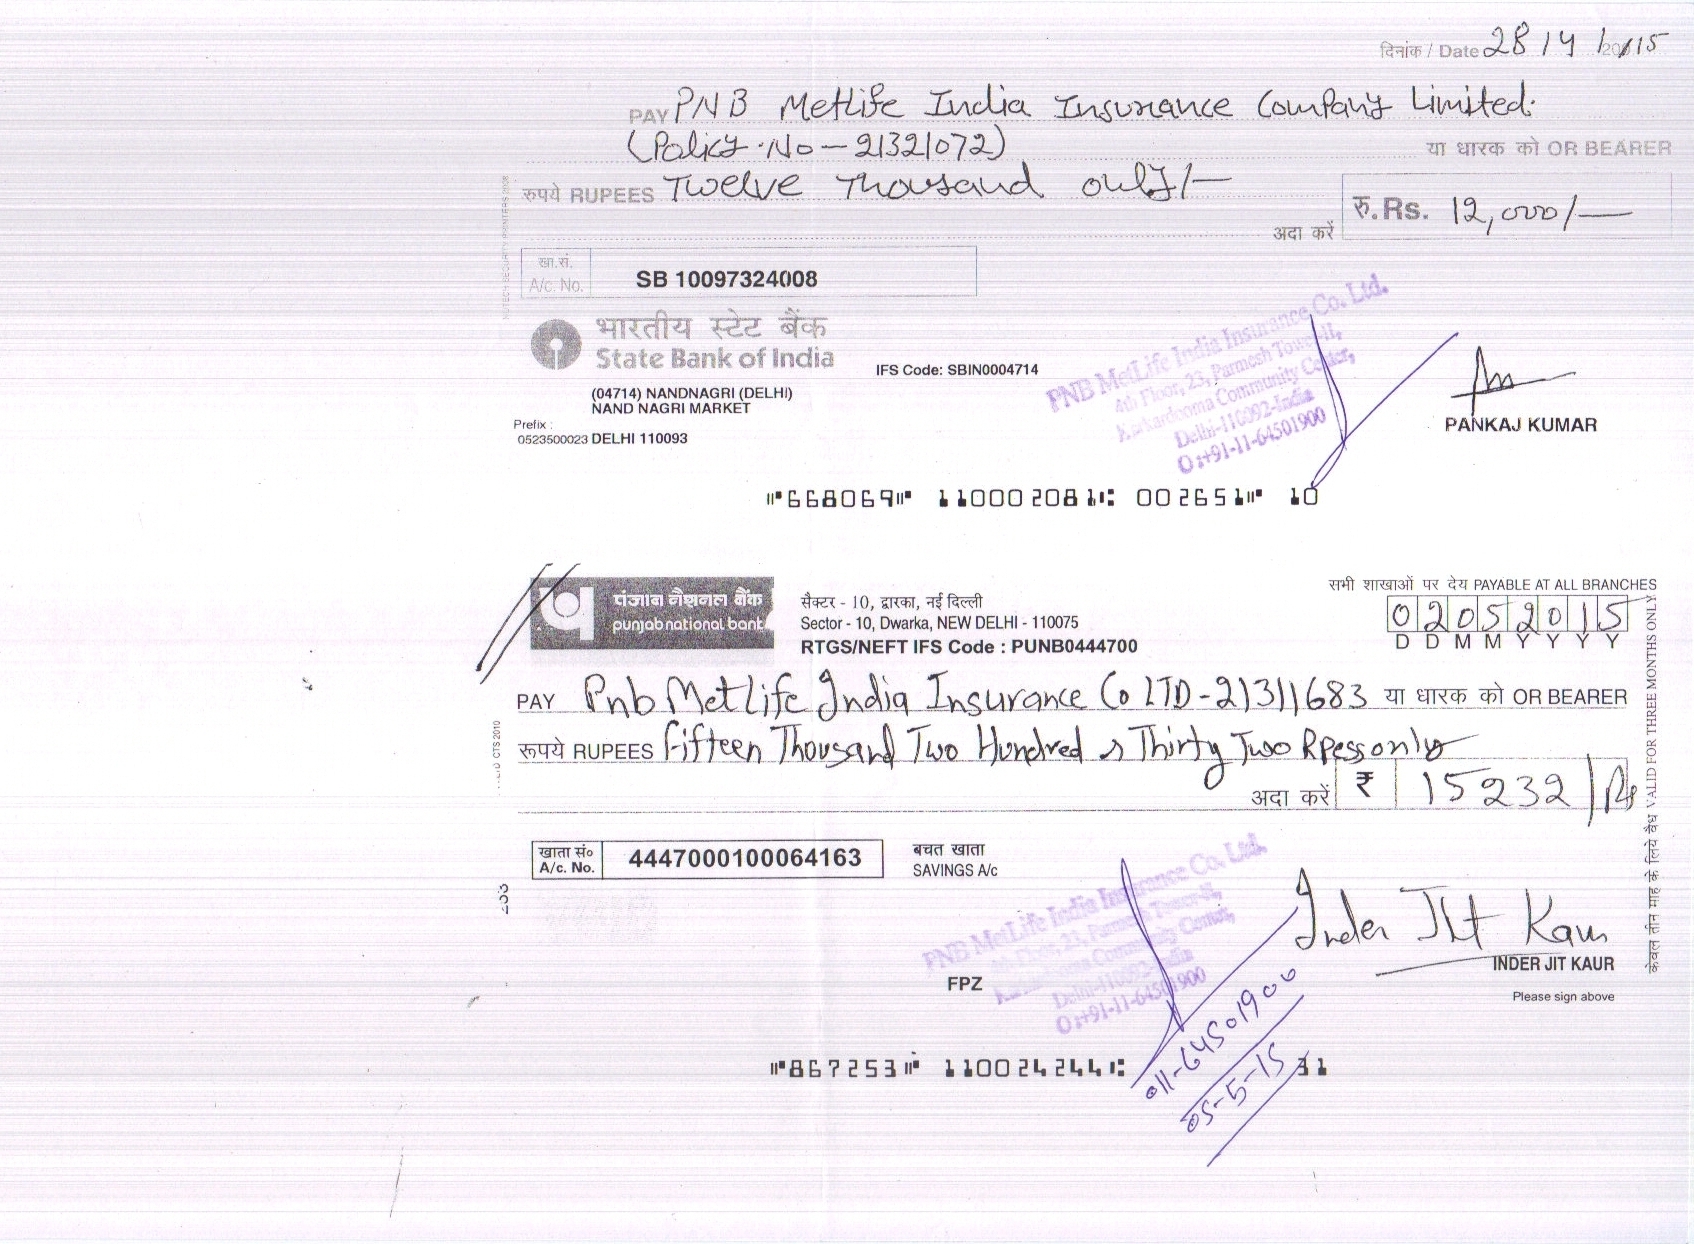 दिनांक / Date 28/4/2015
PAY PNB Metlife India Insurance Company Limited.
(Policy.No-21321072) या धारक को OR BEARER
रुपये RUPEES Twelve Thousand only/-
अदा करें रु.Rs. 12,000/-
खा.सं.
A/c. No. SB 10097324008
भारतीय स्टेट बैंक
State Bank of India
IFS Code: SBIN0004714
(04714) NANDNAGRI (DELHI)
NAND NAGRI MARKET
Prefix :
0523500023 DELHI 110093
PNB MetLife India Insurance Co. Ltd.
4th Floor, 23, Parmesh Tower-II,
Karkardooma Community Center,
Delhi-110092-India
O :+91-11-64501900
PANKAJ KUMAR
⑈668069⑈ 110002081⑆ 002651⑈ 10
पंजाब नैशनल बैंक
punjab national bank
सैक्टर - 10, द्वारका, नई दिल्ली
Sector - 10, Dwarka, NEW DELHI - 110075
RTGS/NEFT IFS Code : PUNB0444700
सभी शाखाओं पर देय PAYABLE AT ALL BRANCHES
02052015
D D M M Y Y Y Y
PAY Pnb MetLife India Insurance Co LTD-21311683 या धारक को OR BEARER
रूपये RUPEES Fifteen Thousand Two Hundred & Thirty Two Rpess only
अदा करें ₹ 15232/Rs
खाता सं०
A/c. No. 4447000100064163
बचत खाता
SAVINGS A/c
CTS 2010
केवल तीन माह के लिये वैध VALID FOR THREE MONTHS ONLY
PNB MetLife India Insurance Co. Ltd.
4th Floor, 23, Parmesh Tower-II,
Karkardooma Community Center,
Delhi-110092-India
O :+91-11-64501900
FPZ
Inder Jit Kaur
INDER JIT KAUR
Please sign above
011-64501900
05-5-15
⑈867253⑈ 110024244⑆ 31